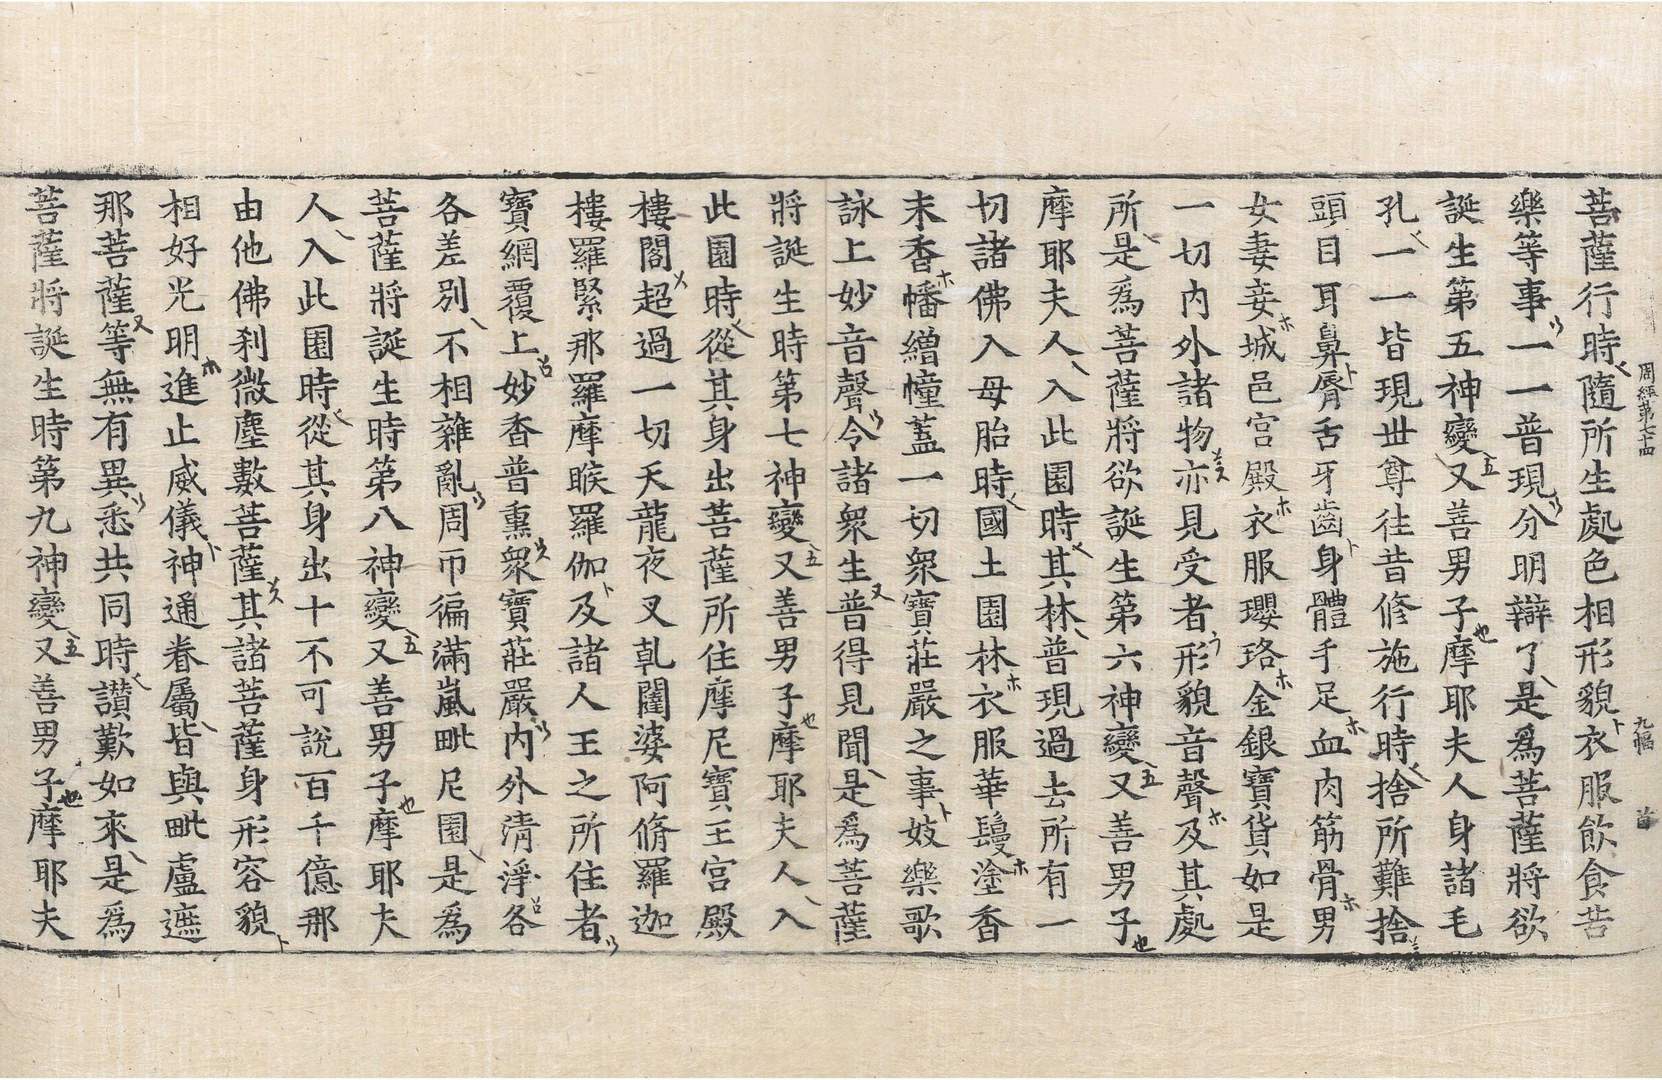 菩薩行時隨所生處色相形貌衣服飲食苦
周經第七十四 九幅 首
樂等事一一普現分明辯了是為菩薩將欲
誕生第五神變又善男子摩耶夫人身諸毛
孔一一皆現世尊往昔修施行時捨所難捨
頭目耳鼻脣舌牙齒身體手足血肉筋骨男
女妻妾城邑宮殿衣服瓔珞金銀寶貨如是
一切內外諸物亦見受者形貌音聲及其處
所是為菩薩將欲誕生第六神變又善男子
摩耶夫人入此園時其林普現過去所有一
切諸佛入母胎時國土園林衣服華鬘塗香
末香幡繒幢蓋一切眾寶莊嚴之事妓樂歌
詠上妙音聲令諸眾生普得見聞是為菩薩
將誕生時第七神變又善男子摩耶夫人入
此園時從其身出菩薩所住摩尼寶王宮殿
樓閣超過一切天龍夜叉乹闥婆阿脩羅迦
樓羅緊那羅摩睺羅伽及諸人王之所住者
寶網覆上妙香普熏眾寶莊嚴內外清淨各
各差別不相雜亂周帀徧滿嵐毗尼園是為
菩薩將誕生時第八神變又善男子摩耶夫
人入此園時從其身出十不可說百千億那
由他佛剎微塵數菩薩其諸菩薩身形容貌
相好光明進止威儀神通眷屬皆與毗盧遮
那菩薩等無有異悉共同時讃歎如來是為
菩薩將誕生時第九神變又善男子摩耶夫